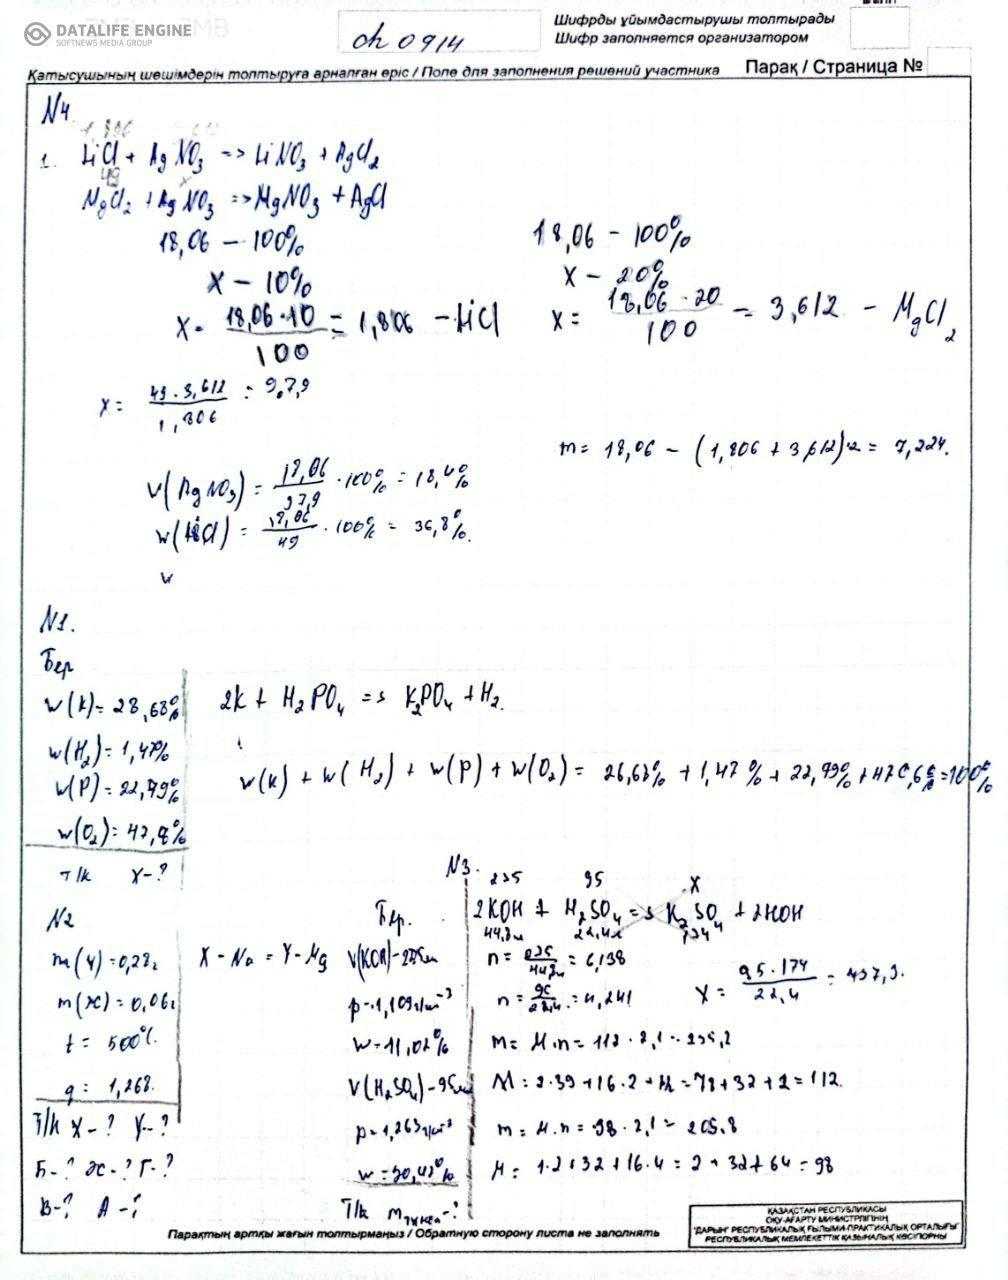 DATALIFE ENGINE
SOFTNEWS MEDIA GROUP
ch 0914
Шифрды ұйымдастырушы толтырады
Шифр заполняется организатором
Қатысушының шешімдерін толтыруға арналған өріс / Поле для заполнения решений участника
Парақ / Страница №
N4
1. LiCl + AgNO3 => LiNO3 + AgCl2
49
MgCl2 + AgNO3 => MgNO3 + AgCl
18,06 - 100%
x - 10%
x = 18,06·10 / 100 = 1,806 - LiCl
18,06 - 100%
x - 20%
x = 18,06·20 / 100 = 3,612 - MgCl2
x = 49·3,612 / 1,806 = 97,9
m = 18,06 - (1,806 + 3,612)·2 = 7,224.
w(AgNO3) = 18,06 / 97,9 · 100% = 18,4%
w(LiCl) = 18,06 / 49 · 100% = 36,8%.
w
N1.
Бер
w(K) = 28,68%
w(H2) = 1,47%
w(P) = 22,79%
w(O2) = 47,%
Т/к X-?
2K + H2PO4 => K2PO4 + H2.
w(K) + w(H2) + w(P) + w(O2) = 26,68% + 1,47% + 22,79% + 47,6% = 100%
N2
m(Ч) = 0,28г
m(Ж) = 0,06г
t = 500°C.
q = 1,268.
Т/к X-? Y-?
Б-? Ж-? Г-?
В-? А-?
X - Na = Y - Mg
N3.
Бер.
V(KOH) - 235мл
p = 1,109г/см-3
w = 11,02%
V(H2SO4) - 95мл
p = 1,263г/см-3
w = 30,42%
Т/к m тұнба -?
235 95 X
2KOH + H2SO4 => K2SO4 + 2HOH
44,8л 22,4л 174
n = 235 / 44,8 = 6,138
n = 95 / 22,4 = 4,241
X = 95·174 / 22,4 = 737,9.
m = M·n = 112·2,1 = 235,2
M = 2·39 + 16·2 + 2 = 78 + 32 + 2 = 112.
m = M·n = 98·2,1 = 205.8
M = 1·2 + 32 + 16·4 = 2 + 32 + 64 = 98
Парақтың артқы жағын толтырмаңыз / Обратную сторону листа не заполнять
ҚАЗАҚСТАН РЕСПУБЛИКАСЫ
ОҚУ-АҒАРТУ МИНИСТРЛІГІНІҢ
"ДАРЫН" РЕСПУБЛИКАЛЫҚ ҒЫЛЫМИ-ПРАКТИКАЛЫҚ ОРТАЛЫҒЫ
РЕСПУБЛИКАЛЫҚ МЕМЛЕКЕТТІК ҚАЗЫНАЛЫҚ КӘСІПОРНЫ